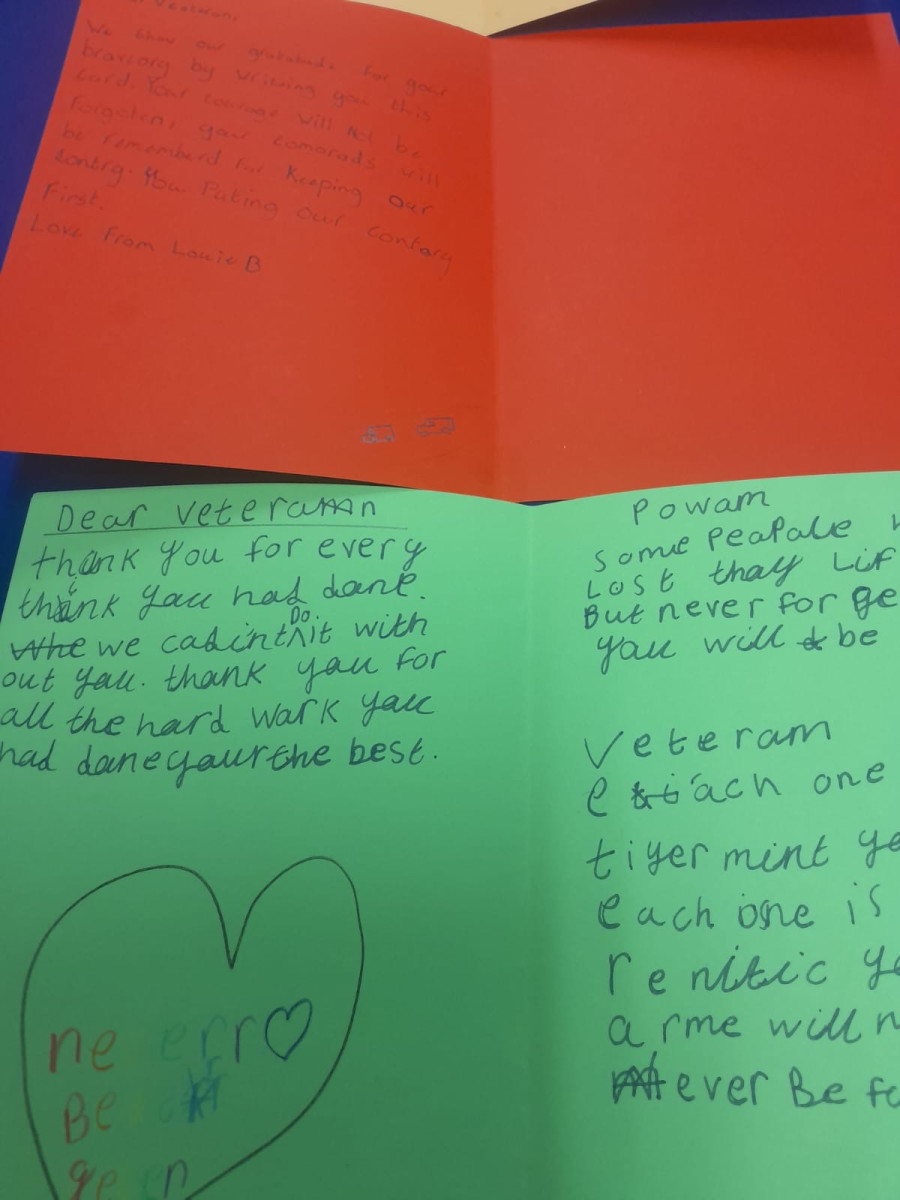 Veatran,
We show our gratatude for your
bravrory by writeing you this
card. Your courage will not be
forgoten, your comorads will
be rememberd for Keeping our
contrg. You Puting our contary
First.
Love From Louie B
Dear veteramn
thank you for every
think you had dane.
we cadint Do it with
out you. thank you for
all the hard wark you
had dane your the best.
never
Be
geen
Powam
some Peapale
Lost thay Lif
But never for ge
you will be
Veteram
each one
tiyer mint ye
each one is
renitic ye
arme will n
ever Be fo